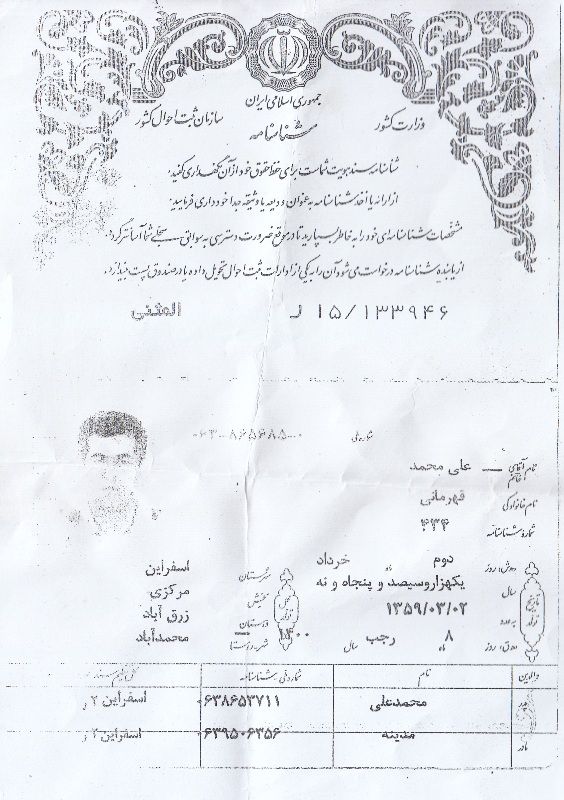 جمهوری اسلامی ایران
وزارت کشور
سازمان ثبت احوال کشور
شناسنامه
شناسنامه سند هویت شماست برای حفظ حقوق خود از آن نگهداری کنید.
از ارائه یا اخذ شناسنامه به عنوان ودیعه یا وثیقه جداً خودداری فرمایید.
مشخصات شناسنامه‌ای خود را به خاطر بسپارید تا در موقع ضرورت دسترسی به سوابق سجلی شما آسانتر گردد.
از یابنده شناسنامه درخواست می شود آن را به یکی از ادارات ثبت احوال تحویل داده یا در صندوق پست بیندازد.
ر ۱۵/۱۳۳۹۴۶
المثنی
شماره ملی ۰۶۳-۸۶۵۶۸۵-۰
نام آقای / خانم علی محمد
نام خانوادگی قهرمانی
شماره شناسنامه
روز دوم ماه خرداد
سال یکهزار و سیصد و پنجاه و نه
۱۳۵۹/۰۳/۰۲
روز ۸ ماه رجب سال ۱۴۰۰
تاریخ تولد
محل تولد
شهرستان اسفراین
بخش مرکزی
دهستان زرق آباد
شهر - روستا محمدآباد
والدین نام شماره ملی شناسنامه
پدر محمدعلی ۰۶۳۸۶۵۳۷۱۱ اسفراین ۲ر
مادر مدینه ۰۶۳۹۵۰۶۳۵۶ اسفراین ۲ر